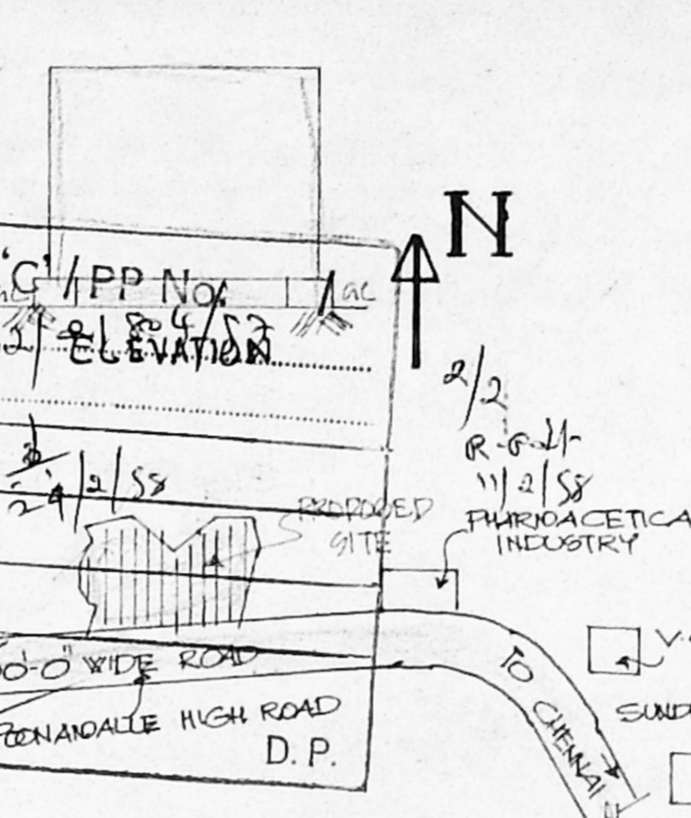 N
'G' / PP No.
ELEVATION
2/2
11/2/58
24/2/58
PROPOSED
SITE
PHARMOACETICA
INDUSTRY
0'-0" WIDE ROAD
POONAMALLE HIGH ROAD
D.P.
TO CHENNAI
V.
SUND